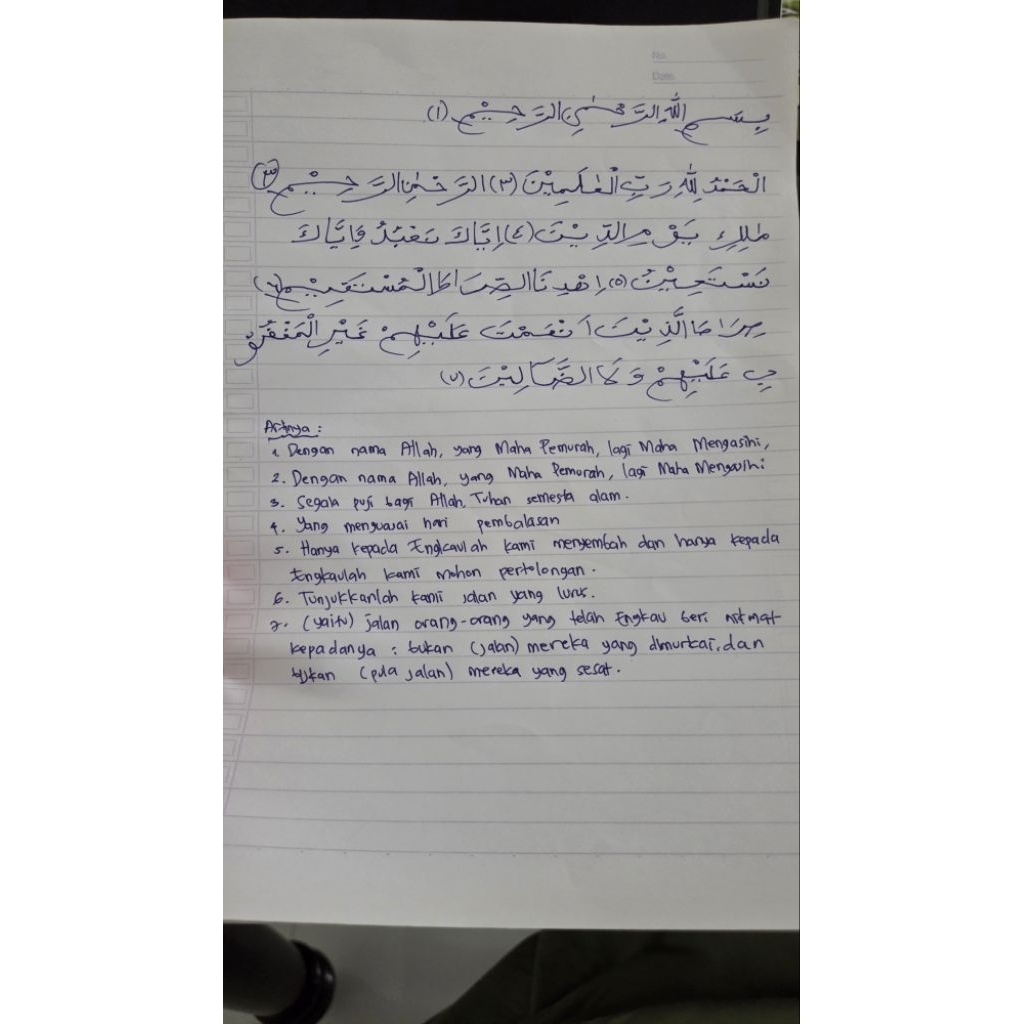 No.
Date.
بِسْمِ اللّٰهِ الرَّحْمٰنِ الرَّحِيْمِ (١)
الْحَمْدُ لِلّٰهِ رَبِّ الْعٰلَمِيْنَ (٣) الرَّحْمٰنِ الرَّحِيْمِ (٣)
مٰلِكِ يَوْمِ الدِّيْنِ (٤) اِيَّاكَ نَعْبُدُ وَاِيَّاكَ
نَسْتَعِيْنُ (٥) اِهْدِنَا الصِّرَاطَ الْمُسْتَقِيْمَ (٦)
صِرَاطَ الَّذِيْنَ اَنْعَمْتَ عَلَيْهِمْ غَيْرِ الْمَغْضُوْ
بِ عَلَيْهِمْ وَلَا الضَّآلِّيْنَ (٧)
Artinya :
1. Dengan nama Allah, yang Maha Pemurah, lagi Maha Mengasihi,
2. Dengan nama Allah, yang Maha Pemurah, lagi Maha Mengasihi
3. Segala puji bagi Allah, Tuhan semesta alam.
4. Yang menguasai hari pembalasan
5. Hanya kepada Engkaulah kami menyembah dan hanya kepada
Engkaulah kami mohon pertolongan.
6. Tunjukkanlah kami jalan yang lurus.
7. (yaitu) jalan orang-orang yang telah Engkau beri nikmat
kepadanya ; bukan (jalan) mereka yang dimurkai, dan
bukan (pula jalan) mereka yang sesat.